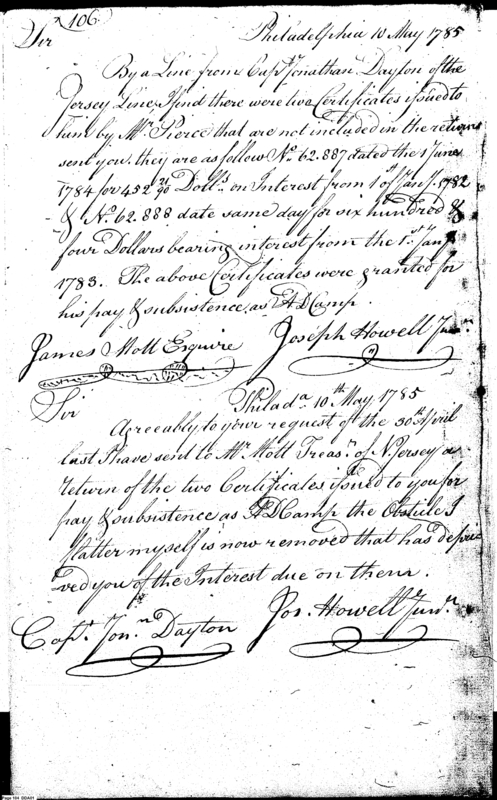 106
Philadelphia 10 May 1785
Sir
By a Line from Capt. Jonathan Dayton of the
Jersey Line, I find there were two Certificates issued to
him by Mr. Pierce that are not included in the returns
sent you. they are as follow No. 62.887 dated the 1 June
1784 for 452 26/90 Dolls. on Interest from 1st of Jany. 1782
& No. 62.888 date same day for six hundred &
four Dollars bearing interest from the 1st. Jany
1783. The above Certificates were granted for
his pay & subsistence, as A D Camp.
James Mott Esquire Joseph Howell Junr.
Philada. 10th May 1785
Sir
Agreeably to your request of the 30th April
last I have sent to Mr. Mott Treasr. of N Jersey a
return of the two Certificates issued to you for
pay & subsistence as A D Camp the Obsticle I
flatter myself is now removed that has depri
ved you of the Interest due on them.
Capt. Jonn. Dayton Jos. Howell Junr.
Page 104